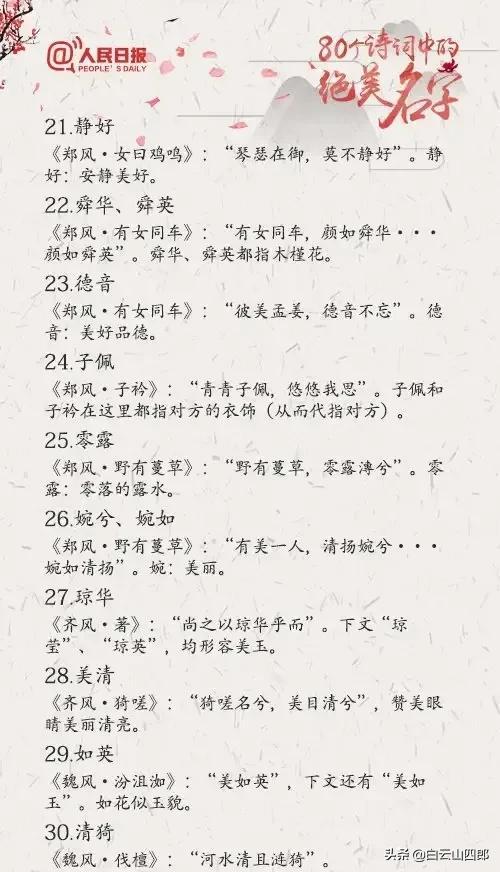 人民日报
PEOPLE'S DAILY
80个诗词中的
绝美名字
21.静好
《郑风·女曰鸡鸣》：“琴瑟在御，莫不静好”。静
好：安静美好。
22.舜华、舜英
《郑风·有女同车》：“有女同车，颜如舜华···
颜如舜英”。舜华、舜英都指木槿花。
23.德音
《郑风·有女同车》：“彼美孟姜，德音不忘”。德
音：美好品德。
24.子佩
《郑风·子衿》：“青青子佩，悠悠我思”。子佩和
子衿在这里都指对方的衣饰（从而代指对方）。
25.零露
《郑风·野有蔓草》：“野有蔓草，零露漙兮”。零
露：零落的露水。
26.婉兮、婉如
《郑风·野有蔓草》：“有美一人，清扬婉兮···
婉如清扬”。婉：美丽。
27.琼华
《齐风·著》：“尚之以琼华乎而”。下文“琼
莹”、“琼英”，均形容美玉。
28.美清
《齐风·猗嗟》：“猗嗟名兮，美目清兮”，赞美眼
睛美丽清亮。
29.如英
《魏风·汾沮洳》：“美如英”，下文还有“美如
玉”。如花似玉貌。
30.清猗
《魏风·伐檀》：“河水清且涟猗”。
头条 @白云山四郎